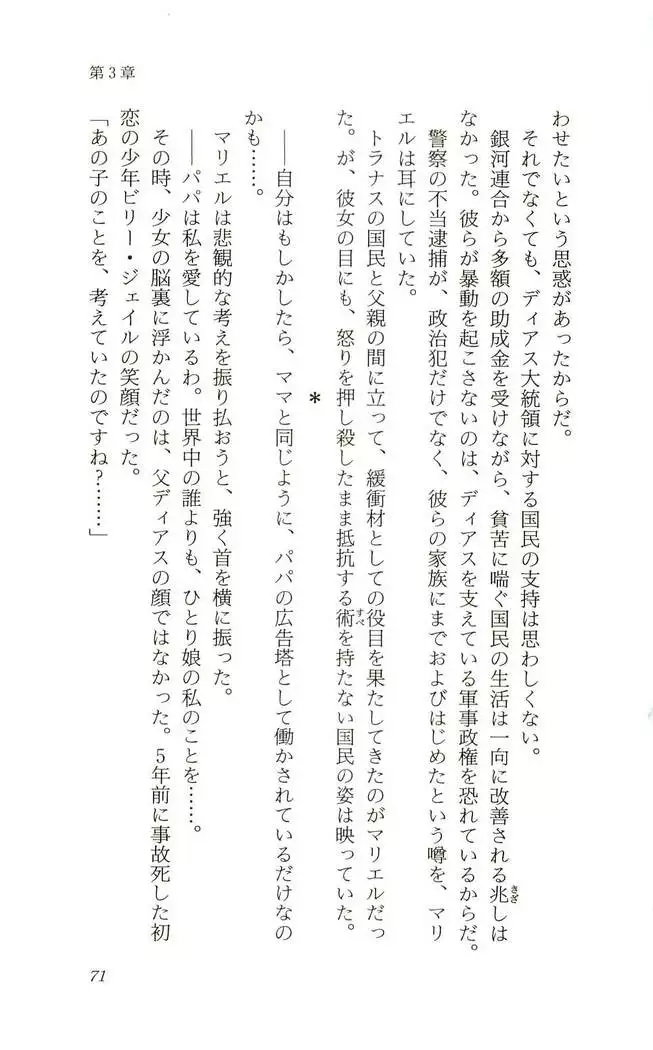 第3章
わせたいという思惑があったからだ。
それでなくても、ディアス大統領に対する国民の支持は思わしくない。
銀河連合から多額の助成金を受けながら、貧苦に喘ぐ国民の生活は一向に改善される兆しは
なかった。彼らが暴動を起こさないのは、ディアスを支えている軍事政権を恐れているからだ。
警察の不当逮捕が、政治犯だけでなく、彼らの家族にまでおよびはじめたという噂を、マリ
エルは耳にしていた。
トラナスの国民と父親の間に立って、緩衝材としての役目を果たしてきたのがマリエルだっ
た。が、彼女の目にも、怒りを押し殺したまま抵抗する術を持たない国民の姿は映っていた。
*
――自分はもしかしたら、ママと同じように、パパの広告塔として働かされているだけなの
かも……。
マリエルは悲観的な考えを振り払おうと、強く首を横に振った。
――パパは私を愛しているわ。世界中の誰よりも、ひとり娘の私のことを……。
その時、少女の脳裏に浮かんだのは、父ディアスの顔ではなかった。5年前に事故死した初
恋の少年ビリー・ジェイルの笑顔だった。
「あの子のことを、考えていたのですね?……」
きざ
すべ
71